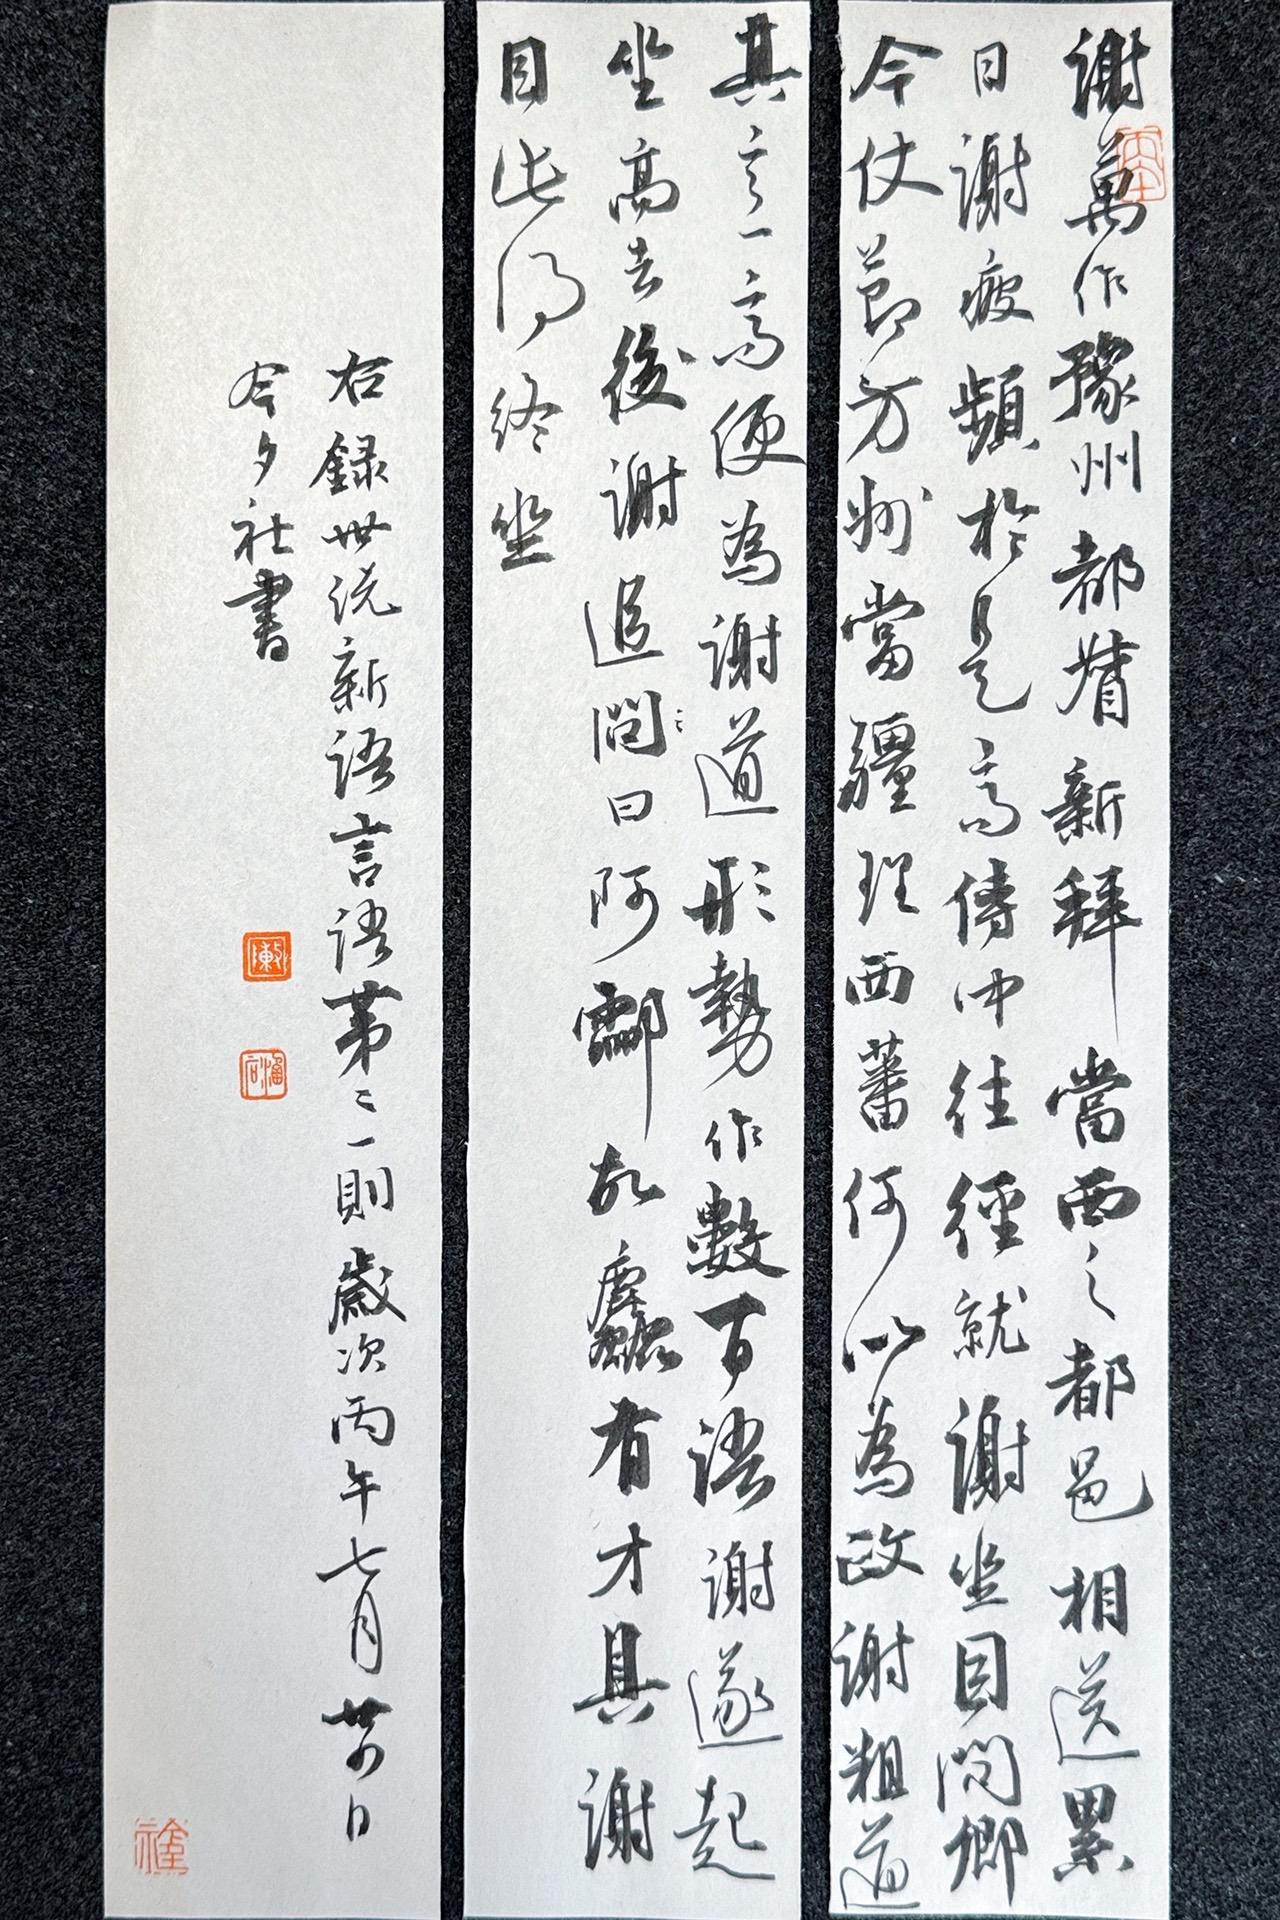 謝萬作豫州都督新拜當西之都邑相送累
日謝疲頻於是高侍中往徑就謝坐因問卿
今仗節方州當疆理西蕃何以為政謝粗道
其意高便為謝道形勢作數百語謝遂起
坐高去後謝追問曰阿酃故麤有才具謝
因此得終坐
右錄世說新語言語第二一則歲次丙午七月廿日
今夕社書